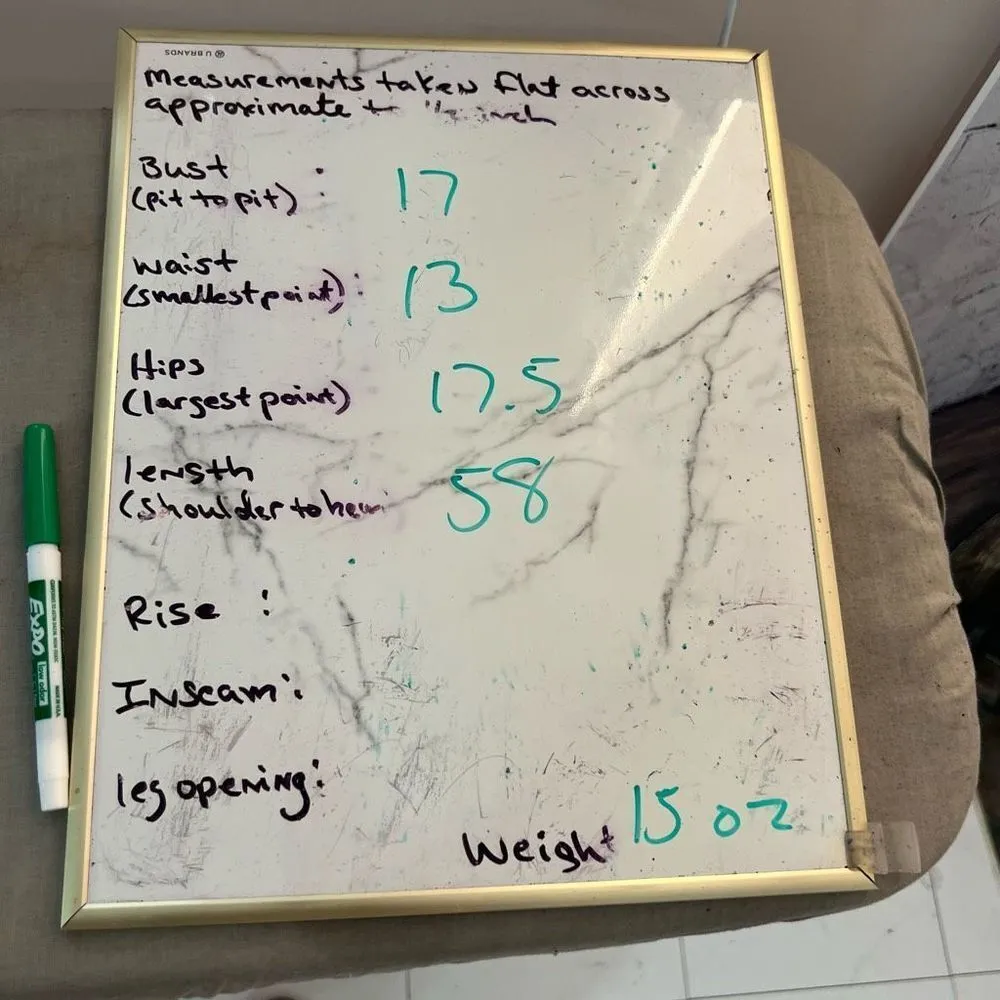 U BRANDS
Measurements taken flat across
approximate + 1/2 inch
Bust : 17
(pit to pit)
Waist : 13
(smallest point)
Hips 17.5
(largest point)
length 58
(shoulder to hem
Rise :
Inseam:
leg opening:
Weight 15 oz
EXPO
low odor